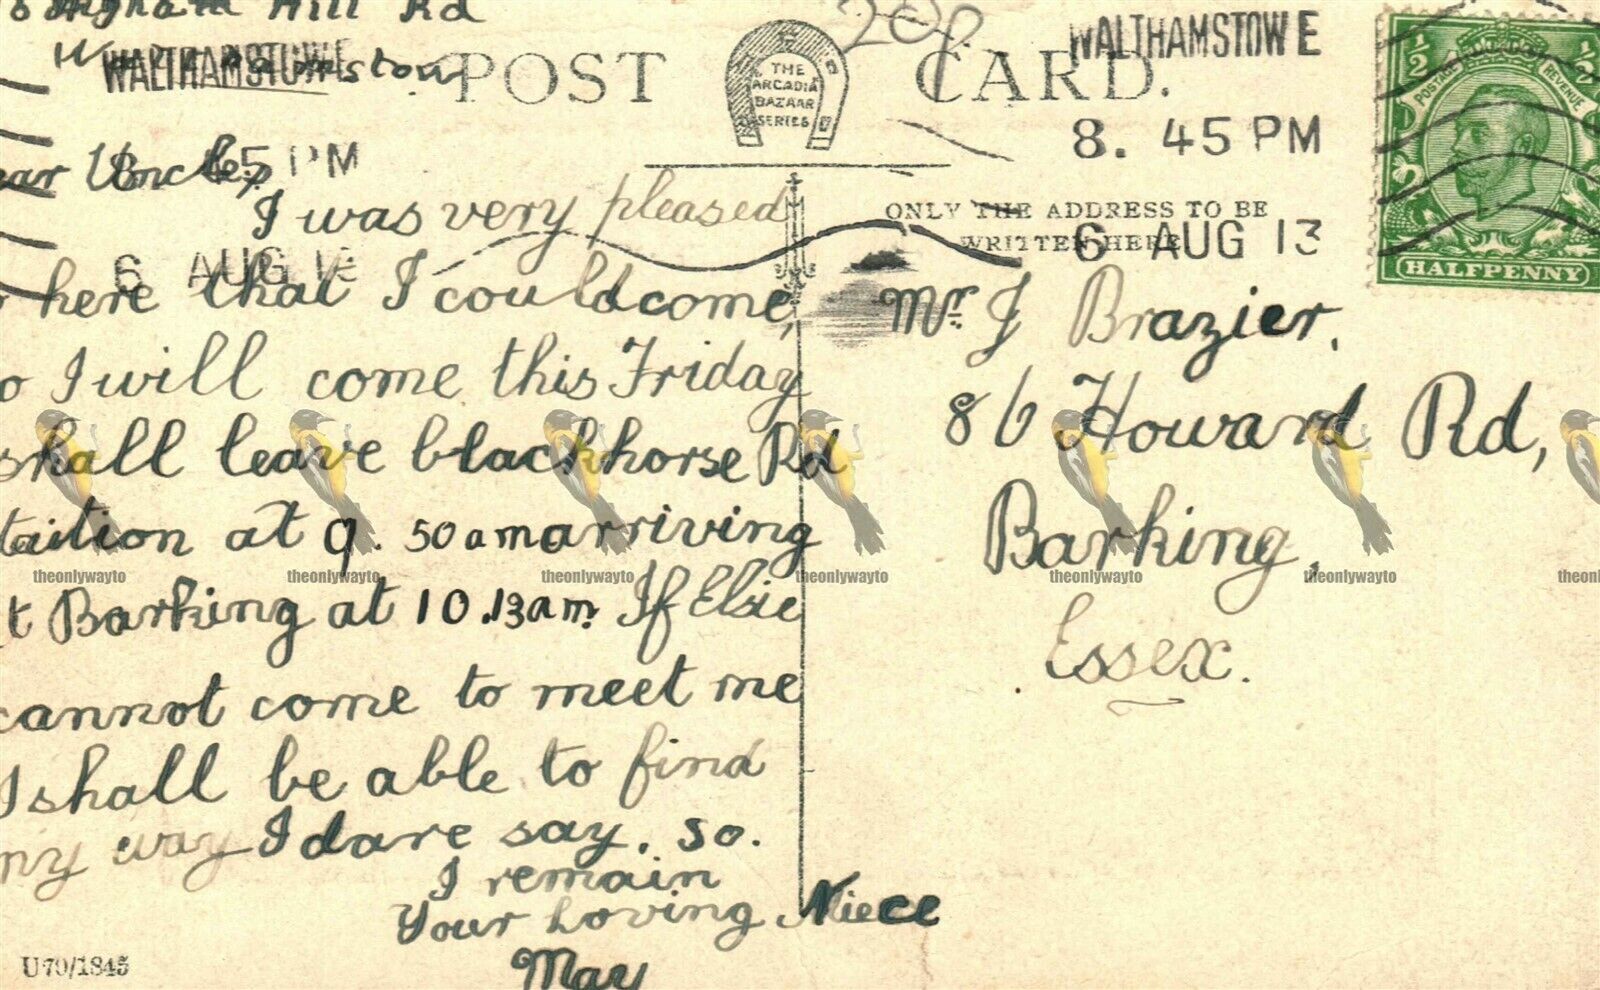 Hill Rd
Walthamstow
WALTHAMSTOW E
8. 45 PM
6 AUG 13
ear Uncle,
I was very pleased
here that I could come,
o I will come this Friday
shall leave blackhorse Rd
taition at 9. 50 am arriving
t Barking at 10.13 am. If Elsie
cannot come to meet me
I shall be able to find
my way I dare say. so.
I remain
Your Loving Niece
May
U70/1845
POST CARD.
THE
ARCADIA
BAZAAR
SERIES
20p
WALTHAMSTOW E
8. 45 PM
6 AUG 13
ONLY THE ADDRESS TO BE
WRITTEN HERE
Mr. J Brazier,
86 Howard Rd,
Barking,
Essex.
½ ½
POSTAGE REVENUE
HALFPENNY
theonlywayto theonlywayto theonlywayto theonlywayto theonlywayto theonlywayto theonl